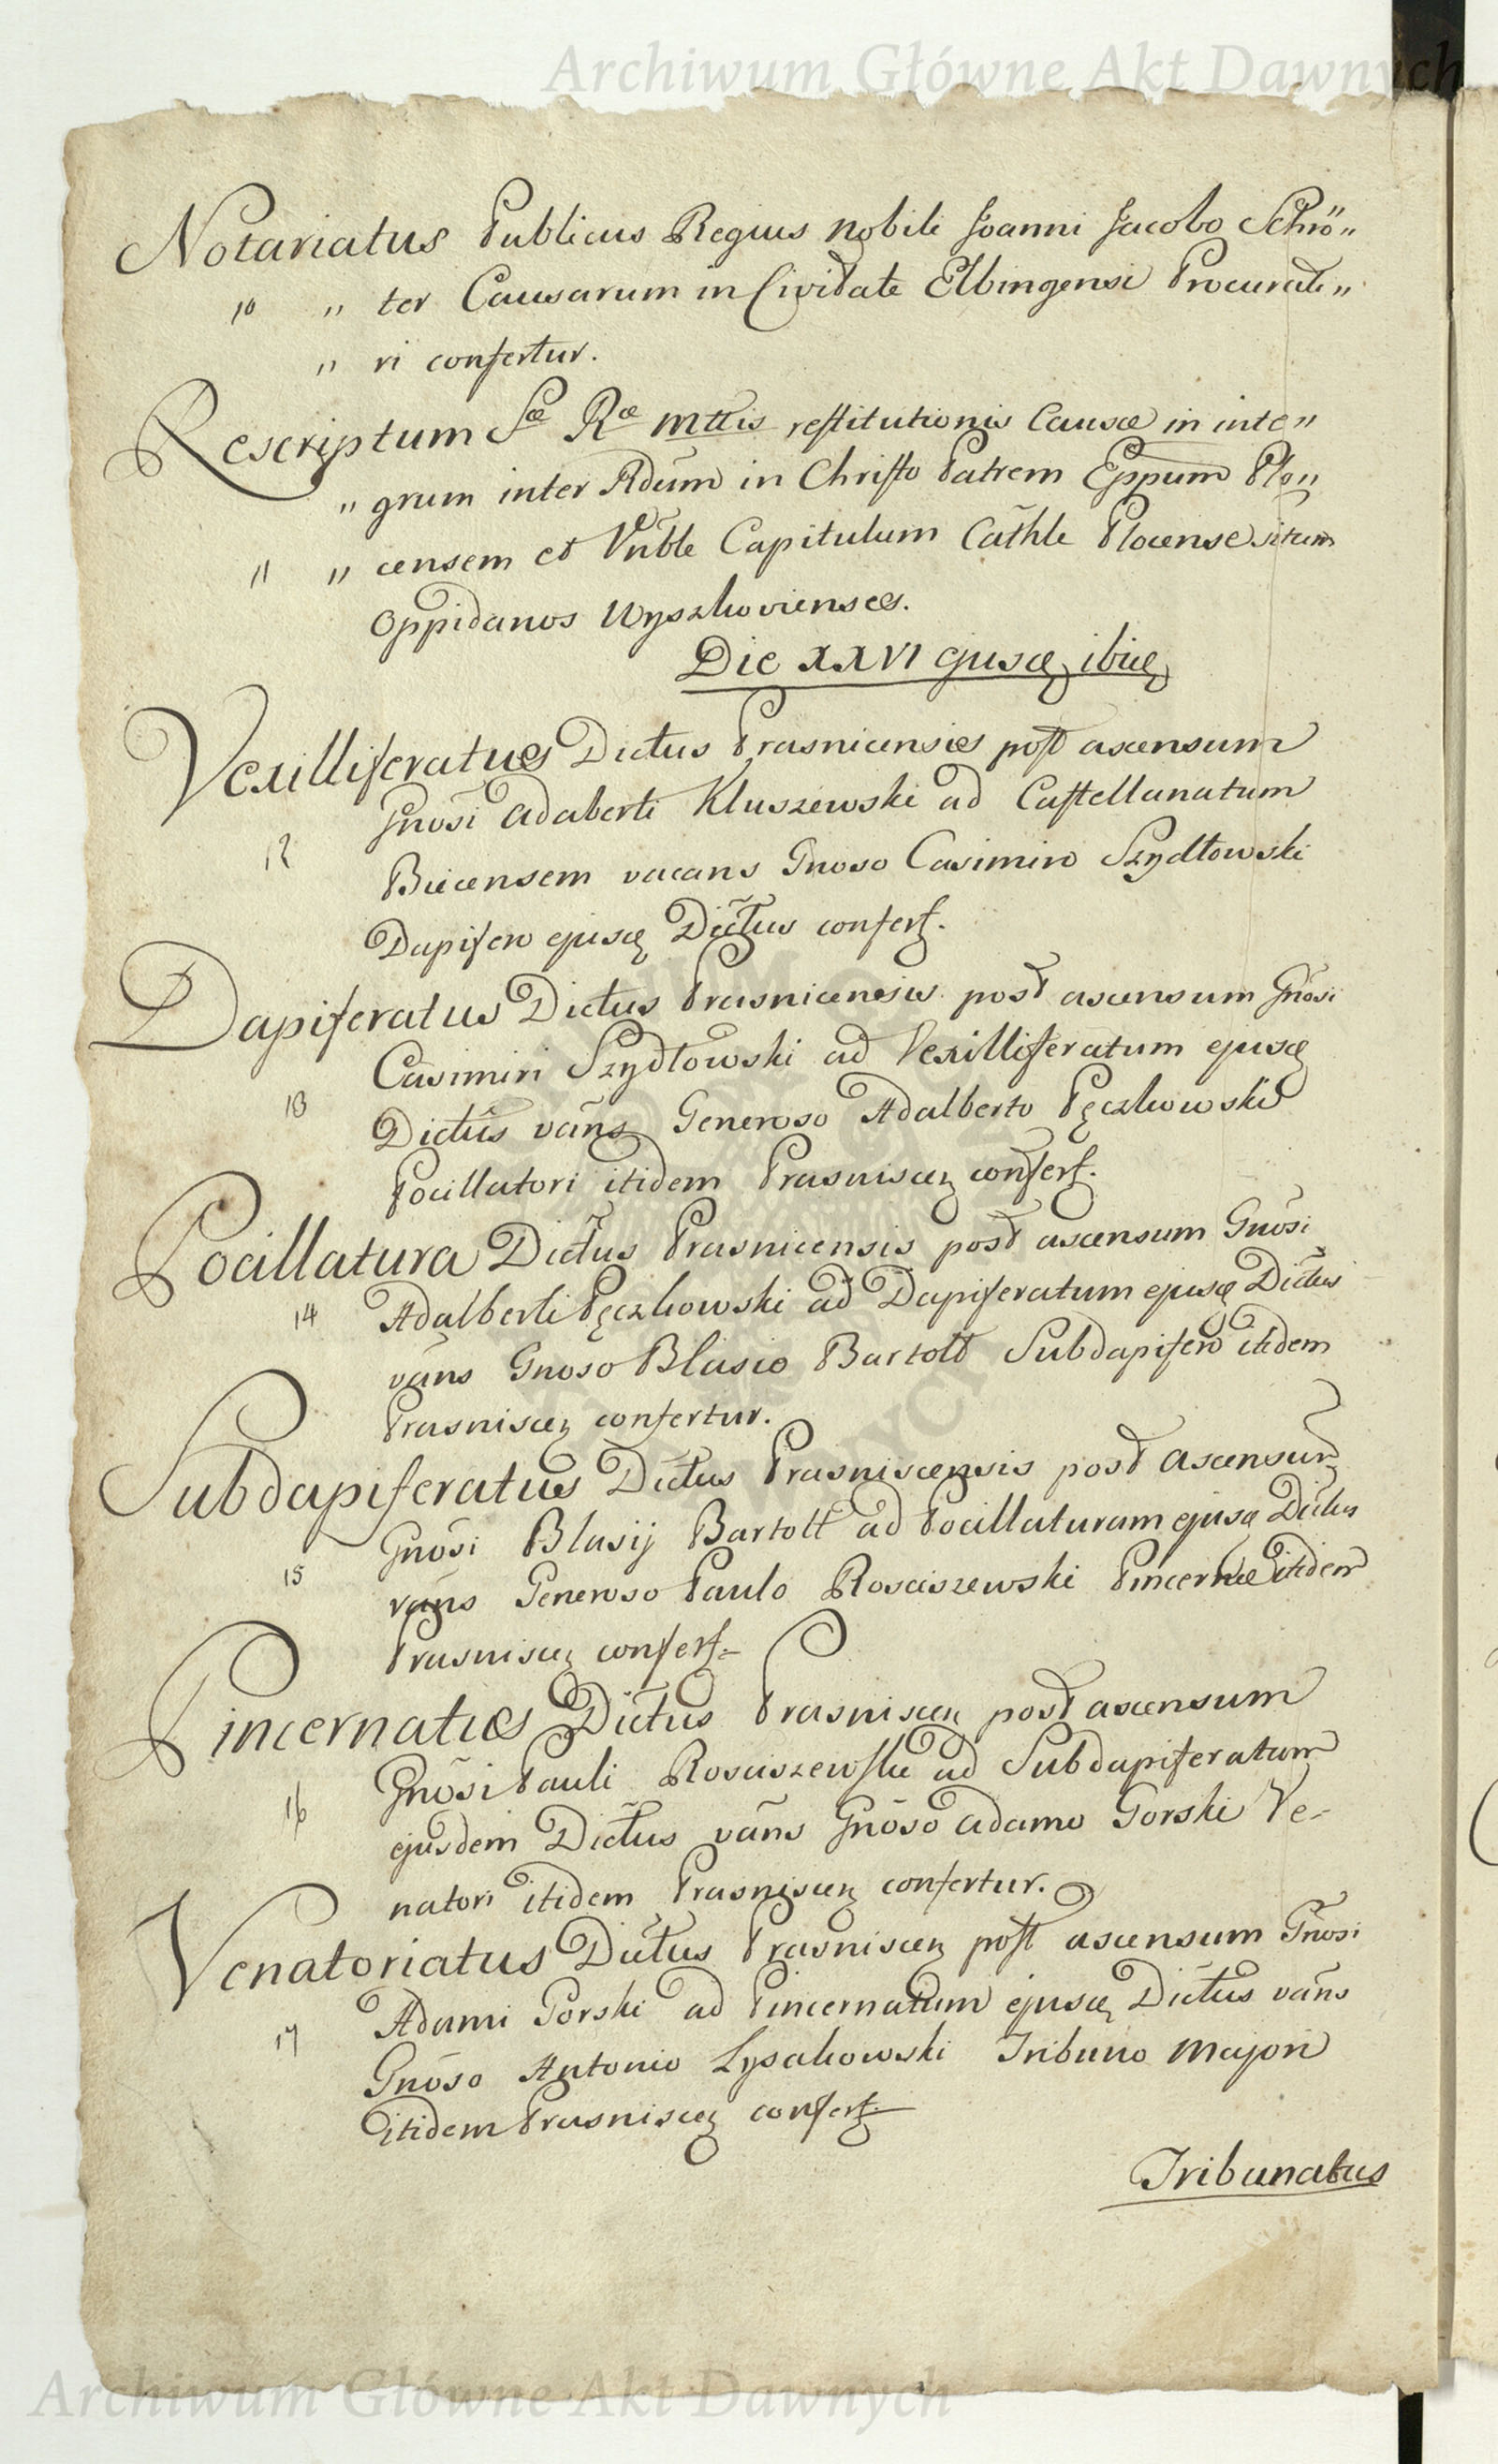 Archiwum Główne Akt Dawnych
Notariatus Publicus Regius Nobili Joanni Jacobo Schrö„
10 „ ter Causarum in Civitate Elbingensi Procurato„
„ ri confertur.
Rescriptum Sæ Ræ Mttis restitutionis Causæ in inte„
„ grum inter Rdum in Christo Patrem Eppum Plo„
11 „ censem et Vnble Capitulum Cathle Plocense
Oppidanos Wyszkovienses.
Die XXVI ejusq ibiq
Vexilliferatus Dictus Prasnicensis post ascensum
Gnosi Adalberti Kluszewski ad Castellanatum
12 Biecensem vacans Gnoso Casimiro Szydłowski
Dapifero ejusq Dictus confert.
Dapiferatus Dictus Prasnicensis post ascensum Gnosi
Casimiri Szydłowski ad Vexilliferatum ejusq
13 Dictus vans Generoso Adalberto Pęczkowski
Pocillatori itidem Prasniscen confert.
Pocillatura Dictus Prasnicensis post ascensum Gnosi
14 Adalberti Pęczkowski ad Dapiferatum ejusq Dictus
vans Gnoso Blasio Bartołt Subdapifero itidem
Prasniscen confertur.
Subdapiferatus Dictus Prasniscensis post ascensum
Gnosi Blasij Bartołt ad Pocillaturam ejusq Dictus
15 vans Generoso Paulo Rosciszewski Pincernæ itidem
Prasniscen confert.
Pincernatus Dictus Prasniscen post ascensum
Gnosi Pauli Rosciszewski ad Subdapiferatum
16 ejusdem Dictus vans Gnoso Adamo Gorski Ve-
natori itidem Prasniscen confertur.
Venatoriatus Dictus Prasniscen post ascensum Gnosi
Adami Gorski ad Pincernatum ejusq Dictus vans
17 Gnoso Antonio Lysakowski Tribuno Majori
itidem Prasniscen confert.
Tribunatus
Archiwum Główne Akt Dawnych